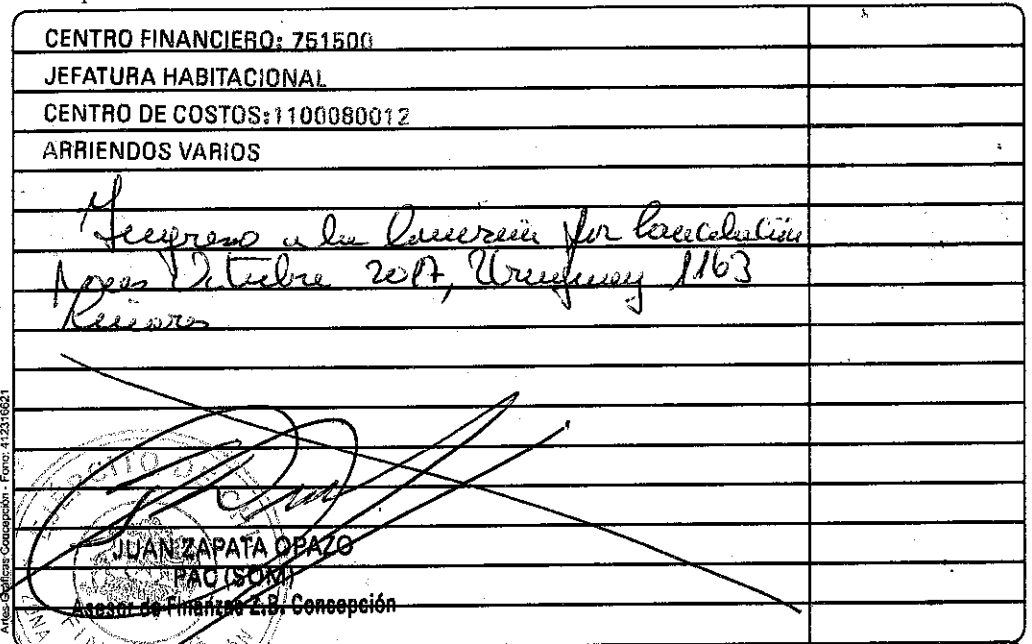 CENTRO FINANCIERO: 751500
JEFATURA HABITACIONAL
CENTRO DE COSTOS: 1100080012
ARRIENDOS VARIOS
Ingreso a la por Cancelación
Octubre 2017, Uruguay 1163
Linares
EJERCITO DE CHILE
JUAN ZAPATA OPAZO
PAC (SOM)
Asesor de Finanzas Z.B. Concepción
Artes Gráficas Concepción - Fono: 412316621